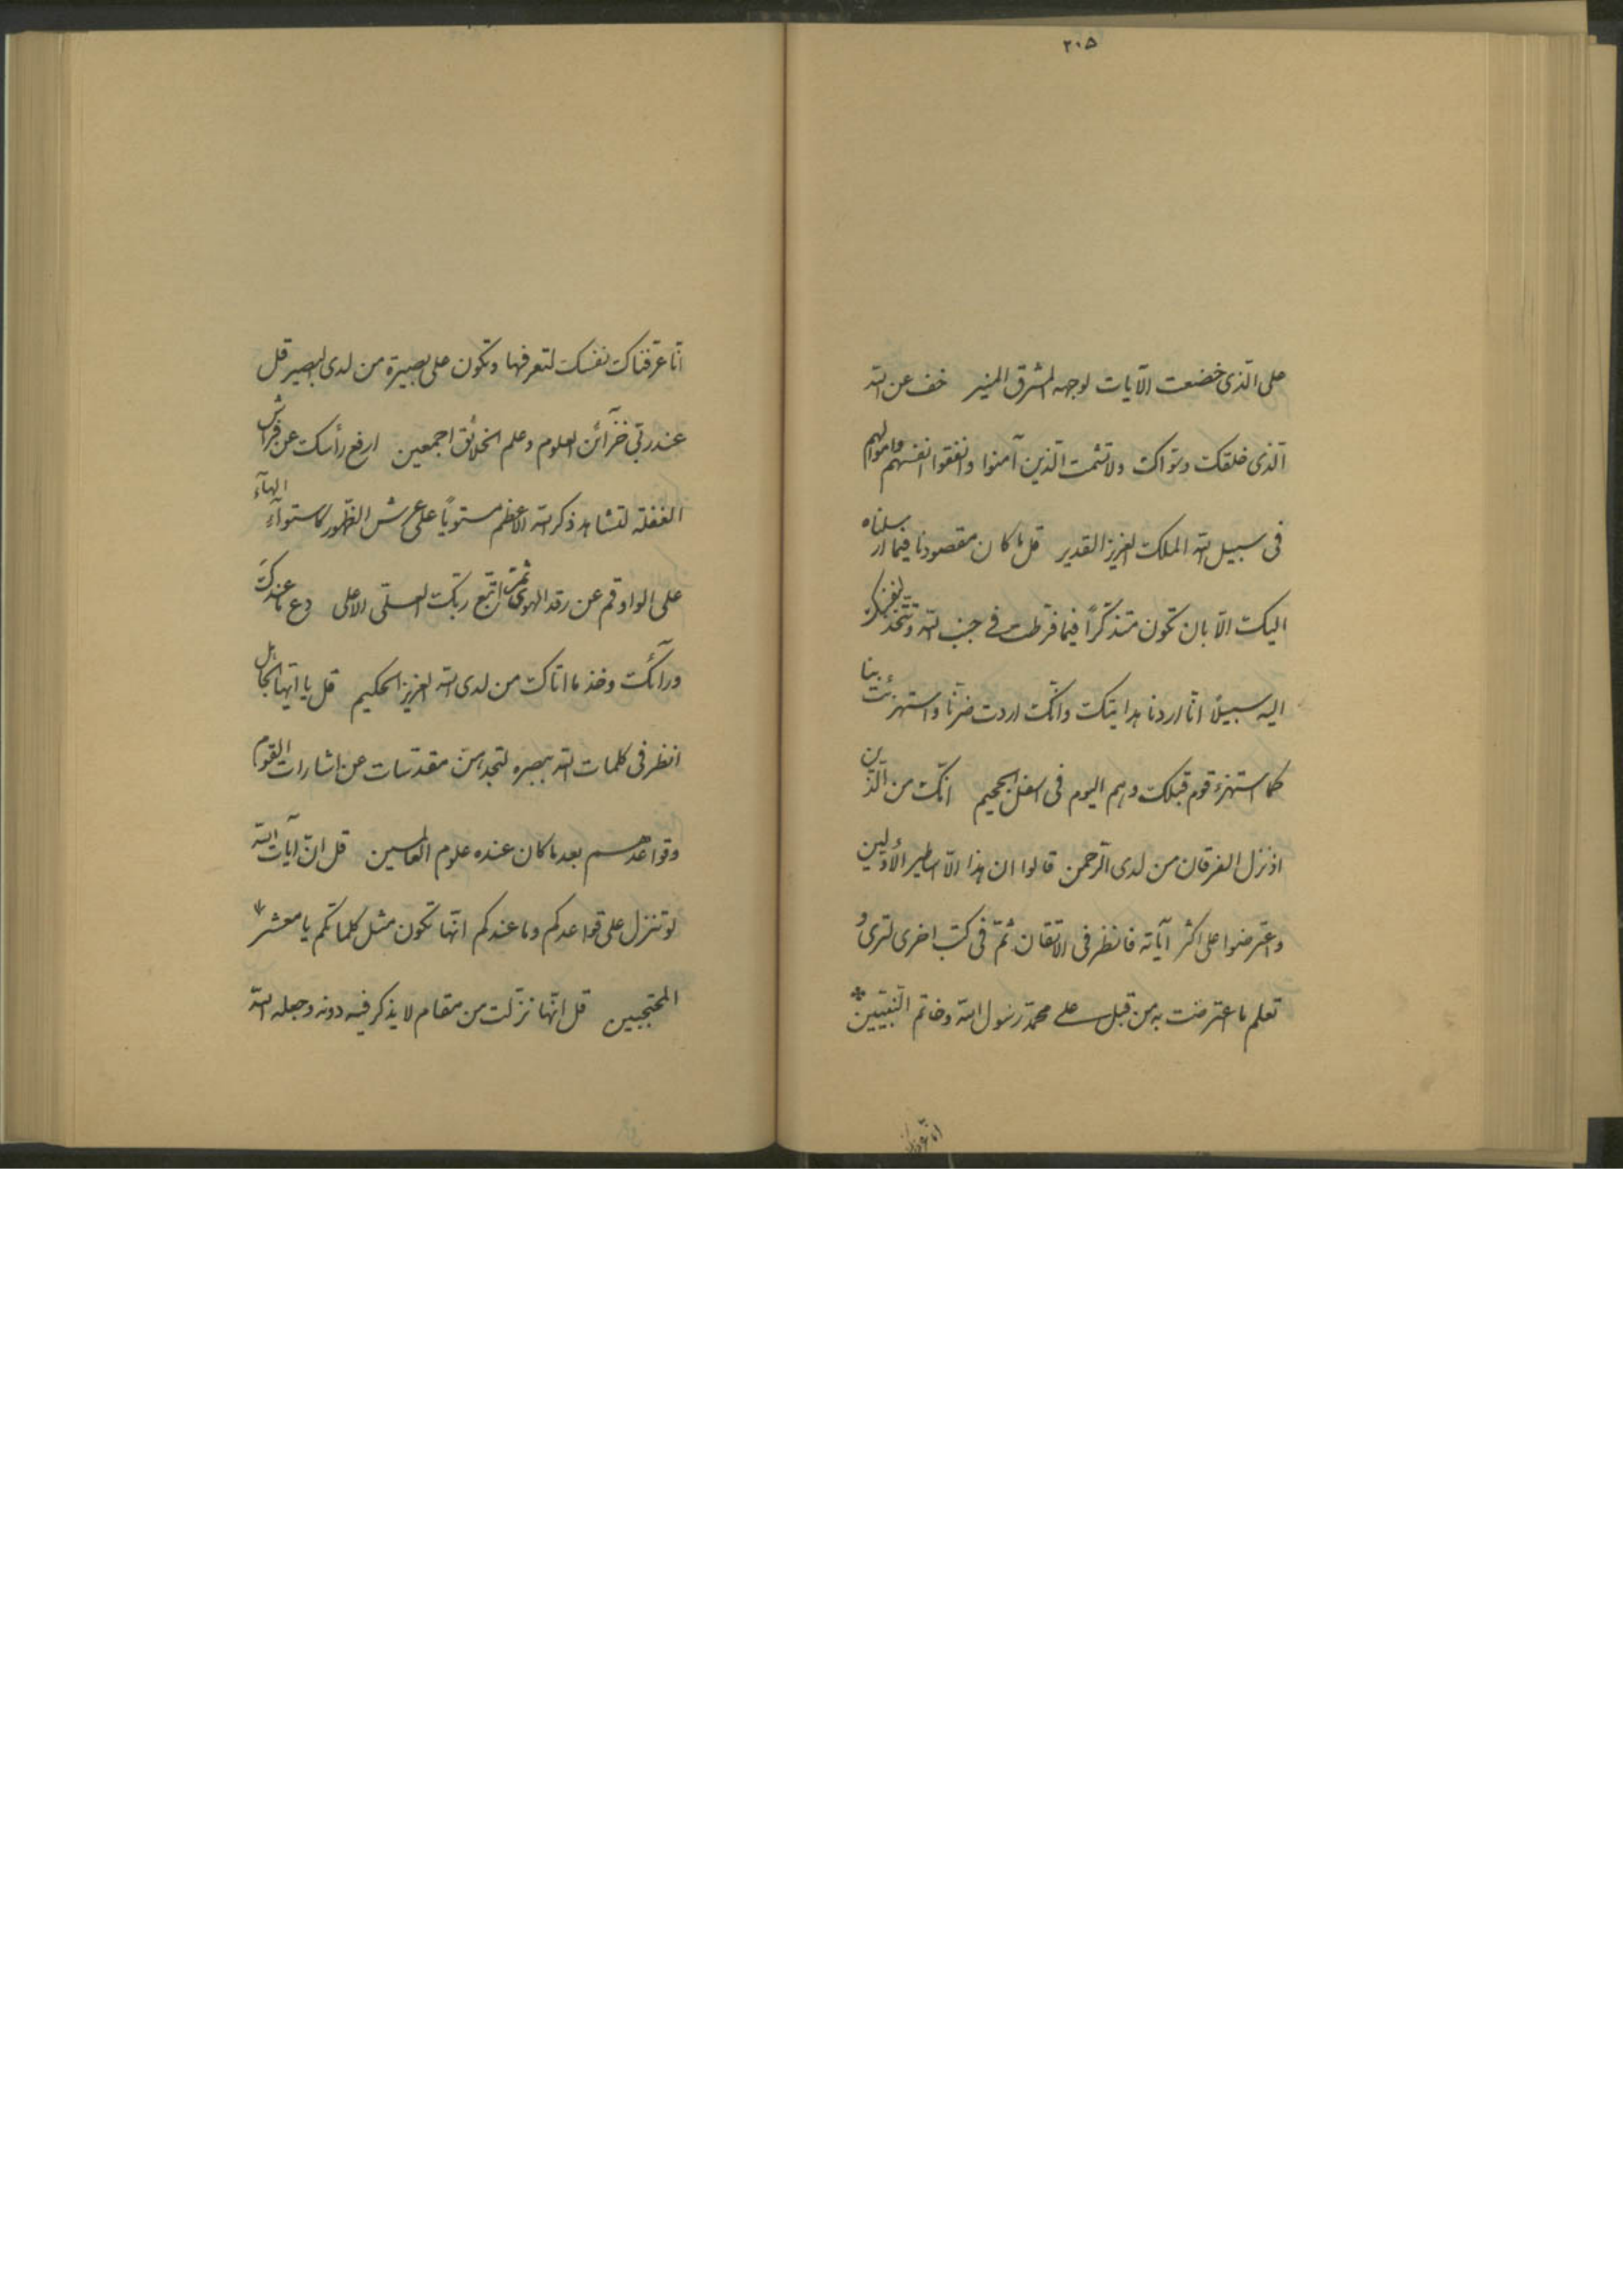 ٢٠۵
على الّذى خضعت الآيات لوجهه المشرق المنير خف عن الله
الّذى خلقك وسوّاك ولا تشمت الّذين آمنوا وانفقوا انفسهم واموالهم
فى سبيل الله الملك العزيز القدير قل ما كان مقصودنا فيما ارسلناه
اليك الّا بان تكون متذكّراً فيما فرّطت فى جنب الله وتتّخذ لنفسك
اليه سبيلاً انّا اردنا هدايتك وانّك اردت ضرّنا واستهزئت بنا
كما استهزء قوم قبلك وهم اليوم فى اسفل الجحيم انّك من الّذين
اذ نزل الفرقان من لدى الرّحمن قالوا ان هذا الّا اساطير الأوّلين
واعترضوا على اكثر آياته فانظر فى الاتقان ثمّ فى كتب اخرى لترى و
تعلم ما اعترضت به من قبل على محمّد رسول الله وخاتم النّبيّين
انّا عرّفناك
انّا عرّفناك نفسك لتعرفها وتكون على بصيرة من لدى البصير قل
عند ربّى خزآئن العلوم وعلم الخلائق اجمعين ارفع رأسك عن فراش
الغفلة لتشاهد ذكر الله الاعظم مستوياً على عرش الظّهور كاستوآء الهآء
على الواو قم عن رقد الهوى ثمّ اتّبع ربّك العلىّ الاعلى دع ما عندك
ورآئك وخذ ما اتاك من لدى الله العزيز الحكيم قل يا ايّها الجاهل
انظر فى كلمات الله ببصره لتجدهنّ مقدّسات عن اشارات القوم
وقواعدهم بعد ما كان عنده علوم العالمين قل انّ آيات الله
لو تنزل على قواعدكم وما عندكم انّها تكون مثل كلماتكم يا معشر
المحتجبين قل انّها نزّلت من مقام لا يذكر فيه دونه وجعله الله